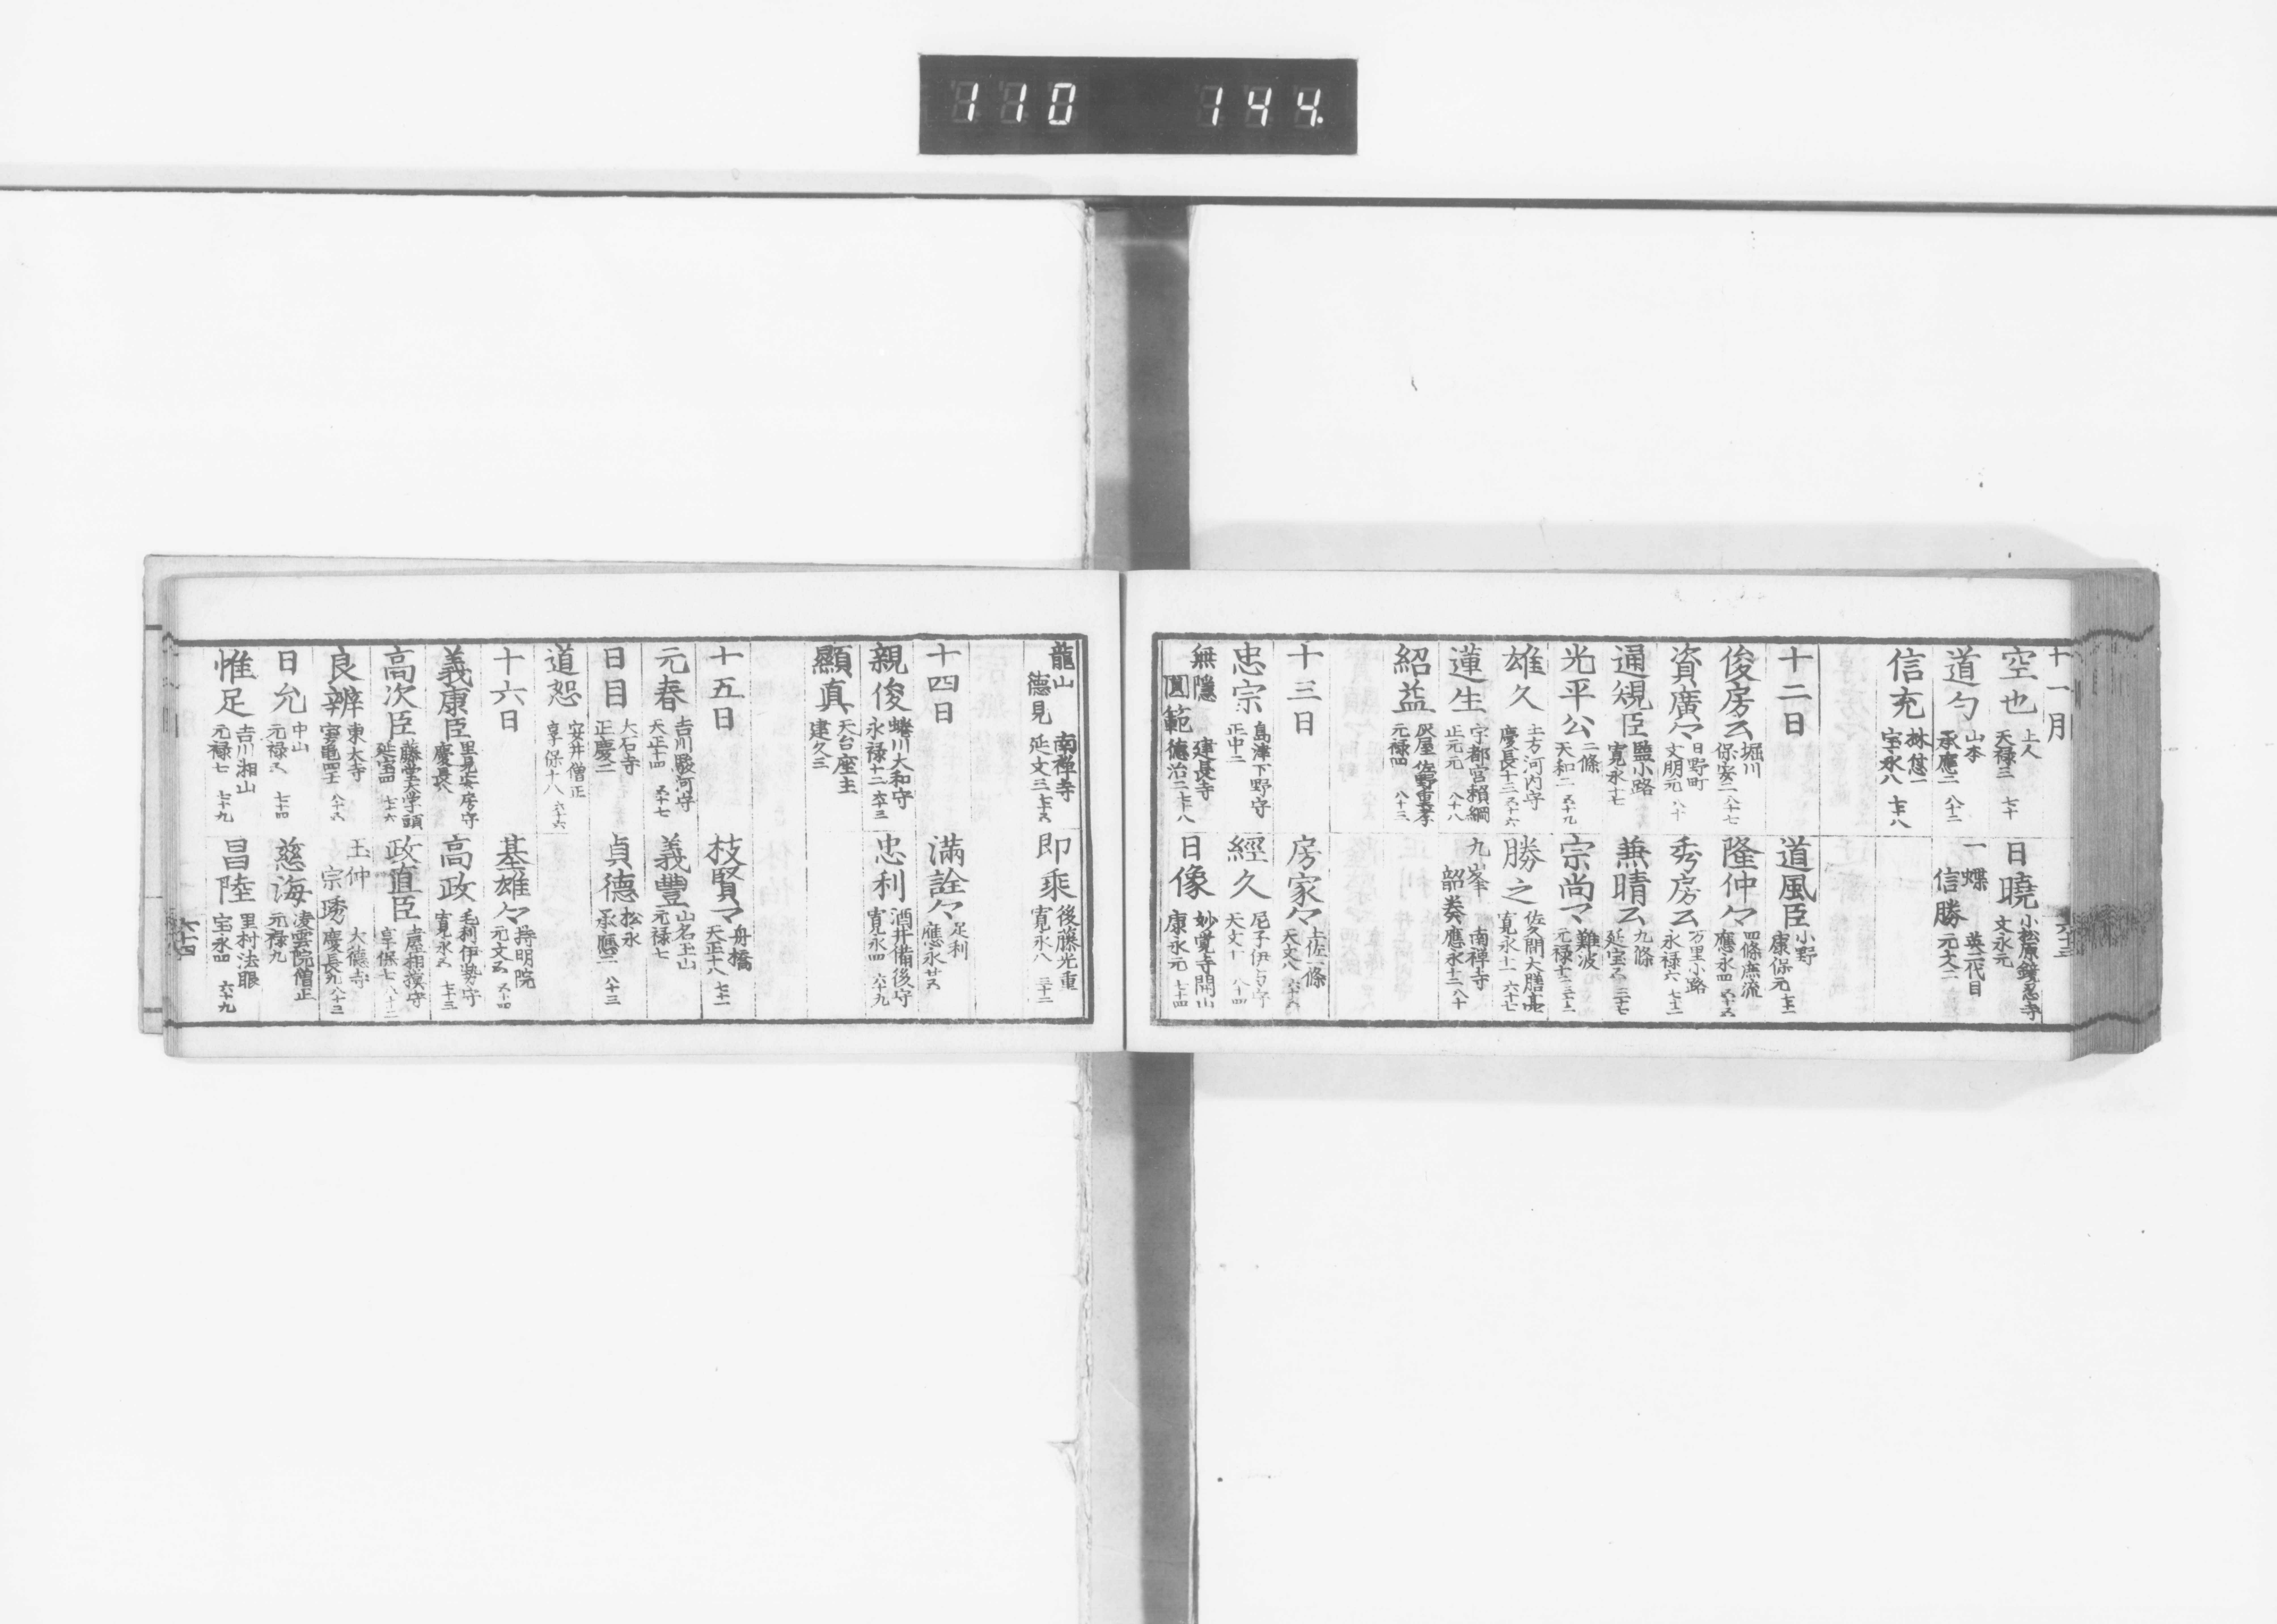 110 144.
十一月
空也 上人 天禄三 七十
日曉 小松原鏡忍寺 文永元
道勺 山本 承應二 八十二
一蝶 信勝 英二代目 元文二
信充 林 信一 宝永八 七十八
十二日
道風臣 小野 康保元 七十二
俊房云 堀川 保安二 八十七
隆仲々 四條庶流 應永四 五十五
資廣々 日野町 文明元 八十
秀房云 万里小路 永禄六 七十二
通規臣 藍小路 寛永十七
兼晴云 九條 延宝五 三十七
光平公 二條 天和二 五十九
宗尚々 難波 元禄十二 三十二
雄久 土方河内守 慶長十三 五十六
勝之 佐久間大膳亮 寛永十一 六十七
蓮生 宇都宮頼綱 正元元 八十八
九峯 韶奏 南禅寺 應永十二 八十
紹益 灰屋 佐野重孝 元禄四 八十三
十三日
房家々 土佐一條 天文八 六十八
忠宗 島津下野守 正中二
經久 尼子伊与守 天文十 八十四
無隠 圓範 建長寺 徳治二 七十八
日像 妙覚寺開山 康永元 七十四
六十三
龍山 徳見 南禅寺 延文三 七十五
即乘 後藤光重 寛永八 三十二
十四日
滿詮々 足利 應永廿五
親俊 蜷川大和守 永禄十二 六十三
忠利 酒井備後守 寛永四 六十九
顯真 天台座主 建久三
十五日
枝賢々 舟橋 天正十八 七十一
元春 吉川駿河守 天正十四 五十七
義豐 山名玉山 元禄七
日目 大石寺 正慶二
貞徳 松永 承應二 八十三
道恕 安井僧正 享保十八 六十六
十六日
基雄々 持明院 元文五 五十四
義康臣 里見安房守 慶長
高政 毛利伊勢守 寛永五 七十三
高次臣 藤堂大学頭 延宝四 七十六
政直臣 土屋相摸守 享保七 八十二
良辨 東大寺 宝亀四壬 八十五
玉仲 宗琇 大徳寺 慶長九 八十三
日允 中山 元禄五 七十四
慈海 凌雲院僧正 元禄九
惟足 吉川湘山 元禄七 七十九
昌陸 里村法眼 宝永四 六十九
六十四